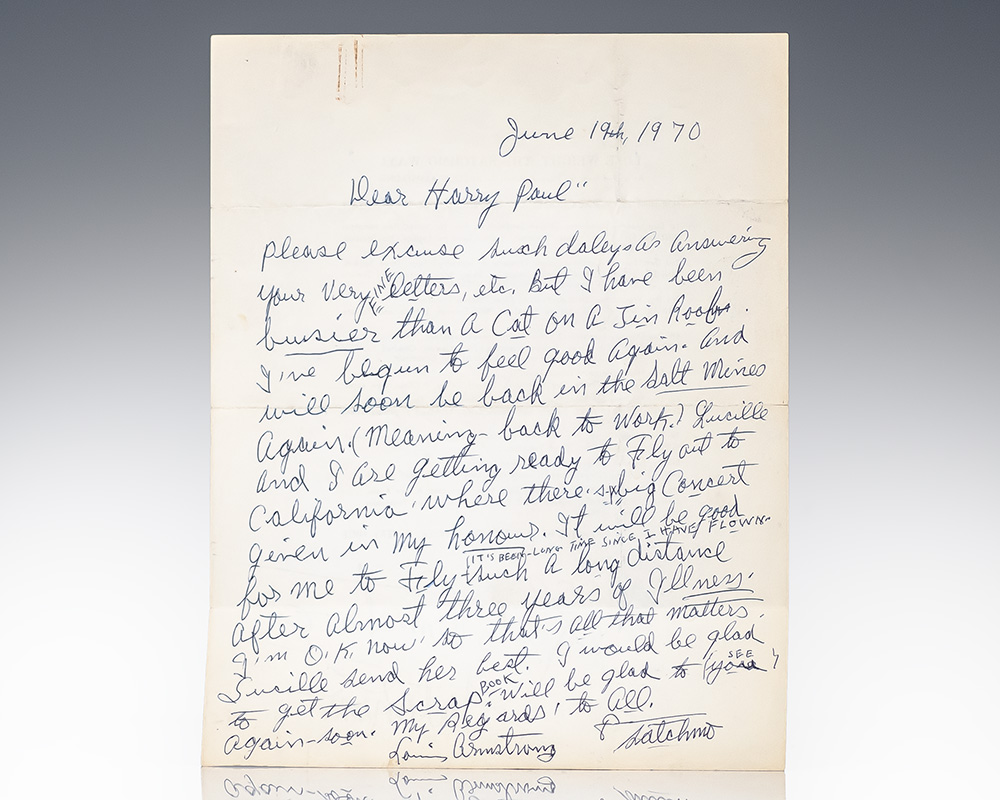 June 19th, 1970
Dear Harry Paul"
Please excuse such daleys As Answering
your Very "FINE" Letters, etc. But I have been
buusier than A Cat on A Tin Roof.
I've begun to feel good Again. And
will soon be back in the Salt Mines
Again. (Meaning - back to Work.) Lucille
And I Are getting ready to Fly out to
California' where there's a big Concert
given in My honour. It will be good
(IT'S BEEN-LONG TIME SINCE I HAVE FLOWN-
for me to Fly such A long distance
After Almost three years of Illness.
I'm O.K. now' so that's All that matters.
Lucille send her best. I would be glad
to get the Scrap BOOK. Will be glad to SEE you
Again-soon. My Regards' to All.
Louis Armstrong
Satchmo